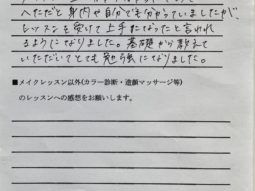 へただと身内や自分でも分かっていましたが、
レッスンを受けて上手になったと言われ
るようになりました。基礎から教えて
いただいてとても勉強になりました。
■メイクレッスン以外(カラー診断・造顔マッサージ等)
のレッスンへの感想をお願いします。